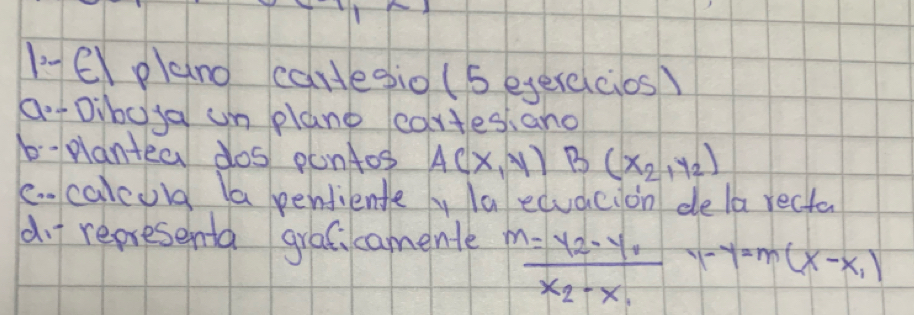 1.- El plano cartesio (5 ejercicios)
a.- Dibuja un plano cartesiano
b.- Plantea dos puntos A(X,Y) B (X2,Y2)
c.- calcula la pendiente y la ecuación de la recta
d.- representa graficamente m = Y2-Y1 / X2-X1 Y-Y=m(X-X1)